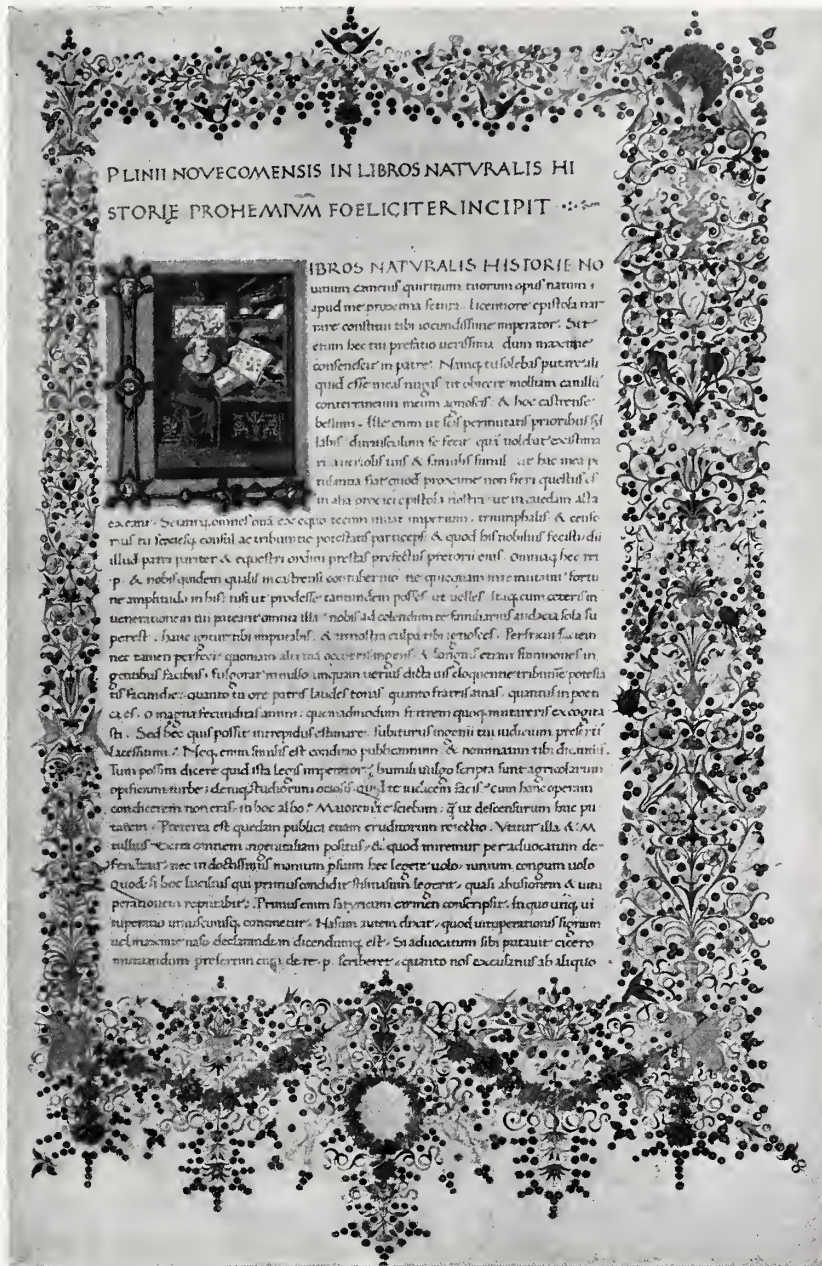 PLINII NOVECOMENSIS IN LIBROS NATVRALIS HI
STORIE PROHEMIVM FOELICITER INCIPIT
IBROS NATVRALIS HISTORIE NO
uitium camenis quiritium tuorum opus natum
apud me proxima fetura licentiore epistola nar
rare constitui tibi iocundissime imperator. Sit
enim hec tui prefatio uerissima dum maximo
consenescit in patre. Namq; tu solebas putare ali
quid esse meas nugas ut obicere molliam catullū
conterraneum meum agnoscis & hoc castrense
uerbum. Ille enim ut scis permutatis prioribus syl
labis duriusculum se fecit quā uolebat existima
ri a uernolis tuis & famulis simul ut hac mea pe
tulantia fiat quod proxime non fieri questus es
in alia procaci epistola nostra ut in quedam alta
exeant. Sciantq; omnes quā ex equo tecum uiuat imperium. triumphalis & censo
rius tu sexiesq; consul ac tribunitie potestatis particeps & quod his nobilius fecisti dū
illud patri pariter & equestri ordini prestas prefectus pretorii eius. Omniaq; hec rei
.p. & nobis quidem qualis in castrensi contubernio nec quicquam mutauit fortu
ne amplitudo in his: nisi ut prodesse tantundem posses ut uelles. Itaq; cum ceteris in
uenerationem tui pateant omnia illa nobis ad colendum te familiarius audacia sola su
perest. hanc igitur tibi imputabis. & in nostra culpa tibi ignosces. Perfricui faciem
nec tamen perfeci: quoniam alia uia occurris ingens. & longius etiam summoues in
gentibus facibus. fulgorat in nullo unquam uerius dicta uis eloquentie tribunitie potesta
tis facundie: quanto tu ore patris laudes tonas quanto fratris amas. quantus in poeti
ca es. O magna fecunditas animi: quemadmodum fratrem quoq; imitareris excogita
sti. Sed hec quis possit intrepidus estimare. subiturus ingenii tui iudicium presertī
lacessitum. Neq; enim similis est condicio publicantium & nominatim tibi dicantiū.
Tum possim dicere quid ista legis imperator: humili uulgo scripta sunt agricolarum
opificum turbe: deniq; studiorum ociosis. quid te iudicem facis: cum hanc operam
condicerem non eras in hoc albo: Maiorem te sciebam: q̄ ut descensurum huc pu
tarem. Preterea est quedam publica etiam eruditorum reiectio. Vtitur illa & M
tullius extra omnem ingenii aliam positus. & quod miremur per aduocatum de
fenditur. nec in doctissimis manium psium hec legere uolo. iunium congum uolo
Quod si hoc lucilius qui primus condidit stili nasum legerit. quasi abusionem & uitu
perationem reputabit: Primus enim satyricum carmen conscripsit. in quo utiq; ui
tuperatio uniuscuiusq; continetur. Nasum autem dixit. quod uituperationis signum
uel maxime naso declarandum dicendumq; est. Si aduocatum sibi putauit cicero
mutuandum presertim cum de re .p. scriberet. quanto nos excusatius ab aliquo